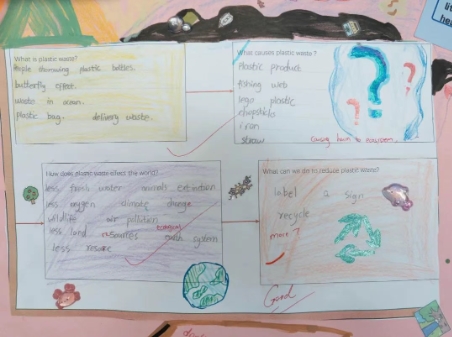 What is plastic waste?
people throwing plastic bottles.
butterfly effect.
waste in ocean.
plastic bag. delivery waste.
What causes plastic waste?
plastic product
fishing web
lego plastic
chopsticks
iron
straw
What can we do to reduce plastic waste?
label a sign
recycle
more?
Good
How does plastic waste affect the world?
less fresh water animals extinction
less oxygen climate change
wildlife air pollution
less land resources system
less